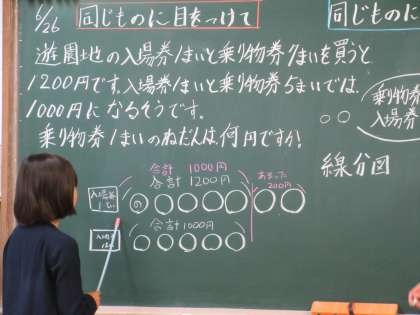 6/26
同じものに目をつけて
同じものに
遊園地の入場券1まいと乗り物券7まいを買うと
1200円です。入場券1まいと乗り物券5まいでは、
1000円になるそうです。
乗り物券1まいのねだんは、何円ですか。
乗り物券
入場券
線分図
合計 1000円
合計 1200円
あまった
200円
入場券
1まい
の
合計 1000円
入場